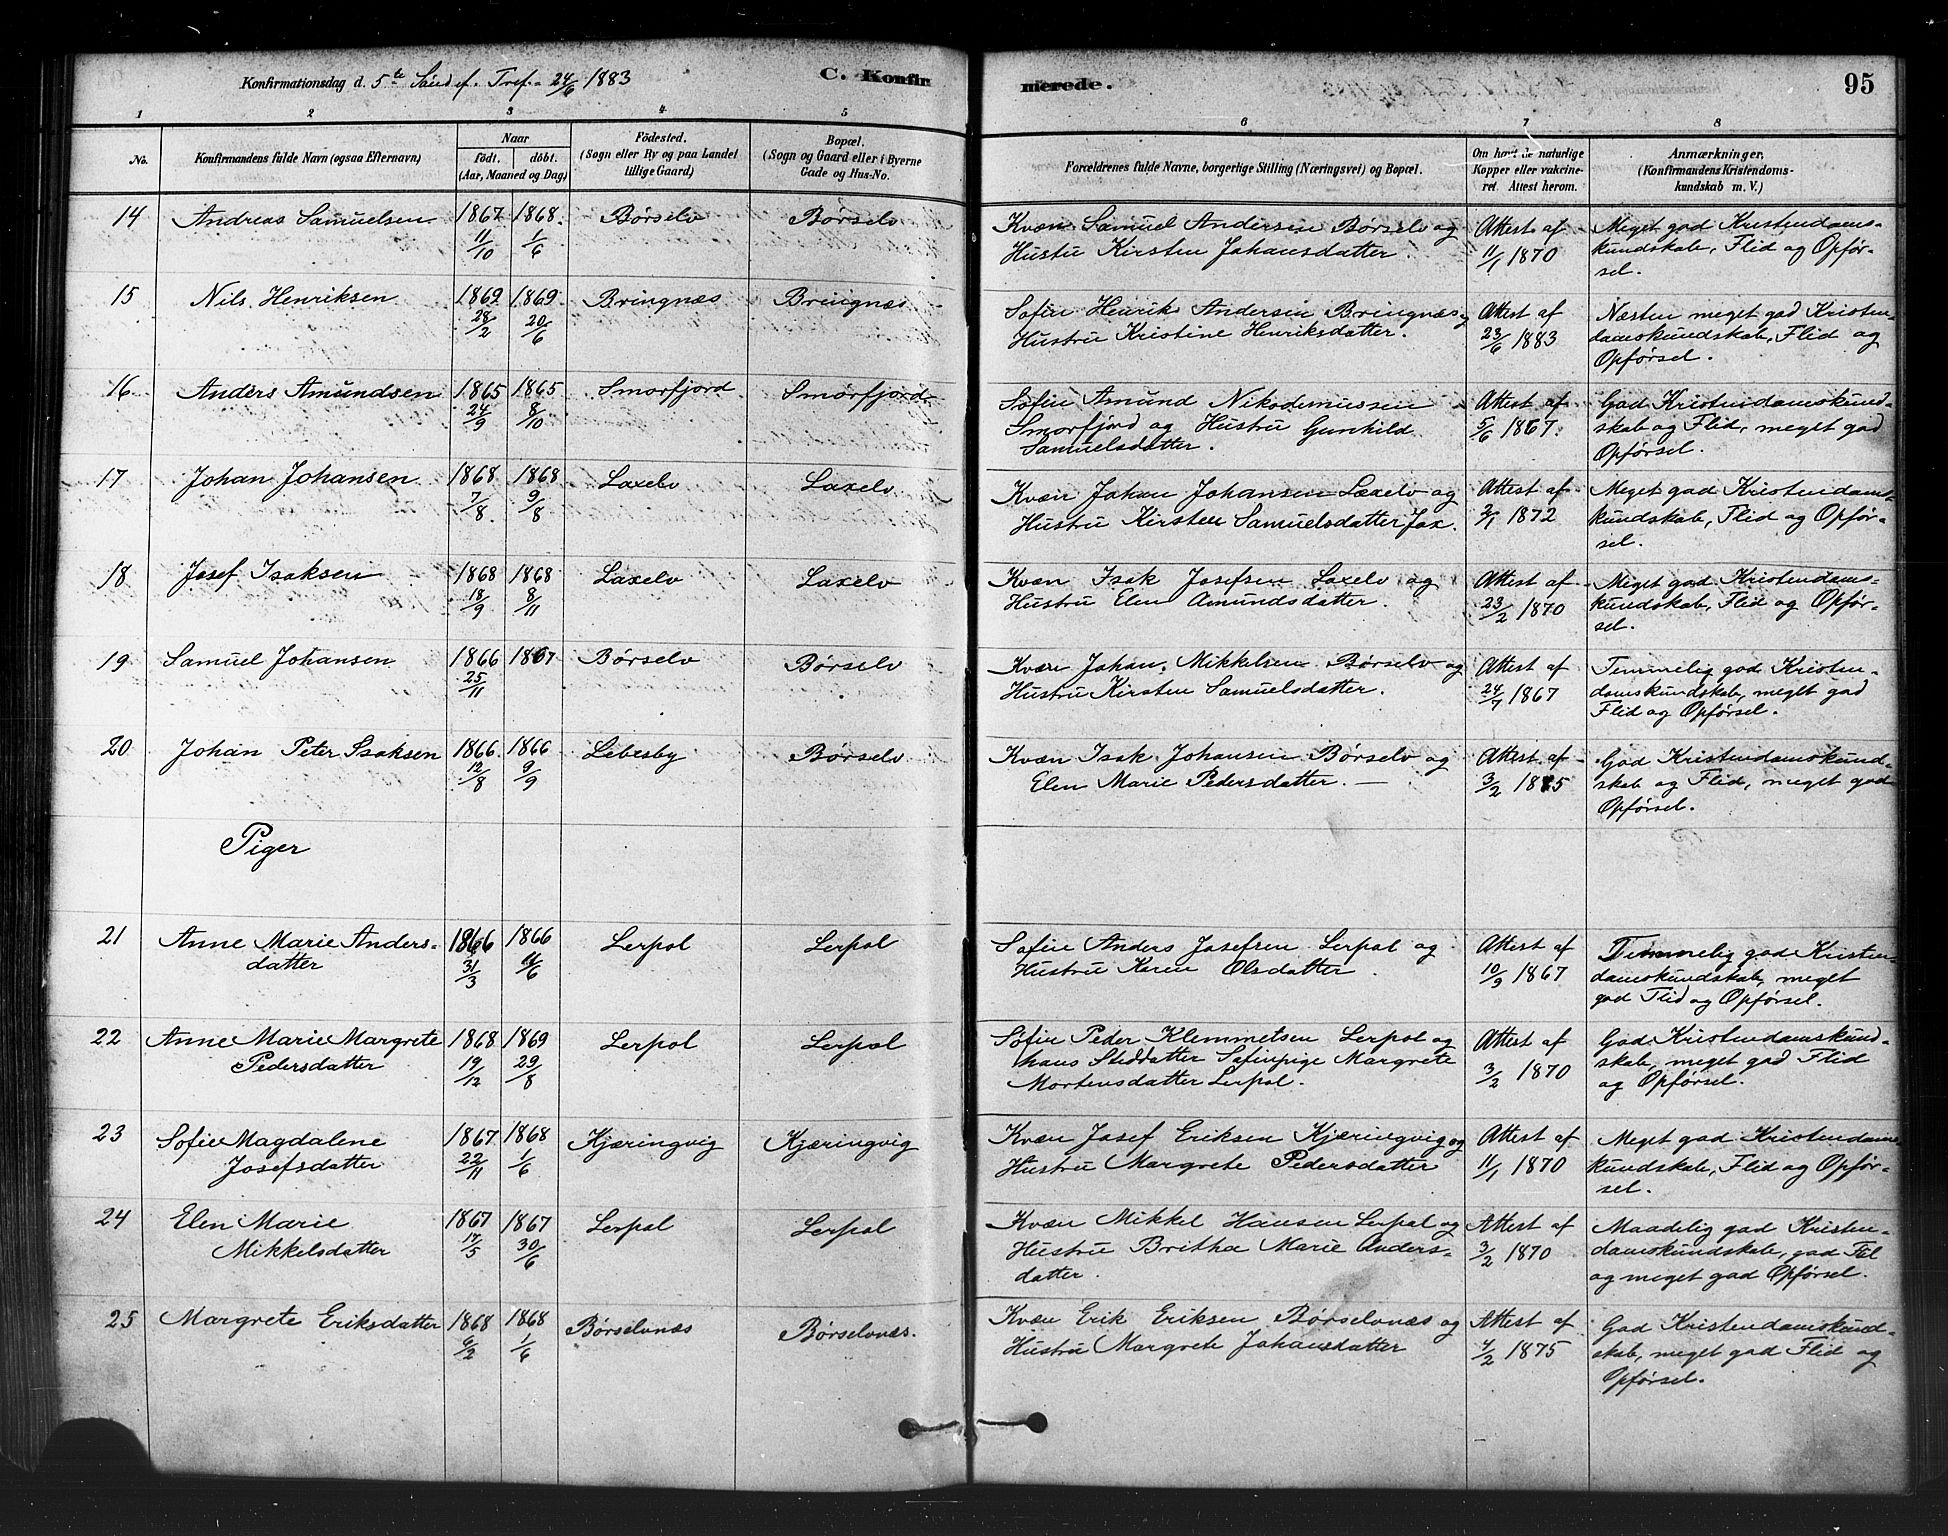 Konfirmationsdag d. 5te Sönd. ef. Tref. 24/6 1883 C. Konfirmerede. 95
1 2 3 4 5 6 7 8
No. Konfirmandens fulde Navn (ogsaa Efternavn) Naar födt. döbt. (Aar, Maaned og Dag) Födested. (Sogn eller By og paa Landet tillige Gaard) Bopæl. (Sogn og Gaard eller i Byerne Gade og Hus-No. Forældrenes fulde Navne, borgerlige Stilling (Næringsvei) og Bopæl. Om havt de naturlige Kopper eller vakcineret. Attest herom. Anmærkninger. (Konfirmandens Kristendomskundskab m. V.)
14 Andreas Samuelsen 1867 11/10 1868. 1/6 Børselv Børselv Kvæn Samuel Andersen Børselv og Attest af Meget god Kristendoms-
Hustu Kirsten Johansdatter. 11/1 1870 kundskab, Flid og Opfør-
sel.
15 Nils Henriksen 1869 28/2 1869. 20/6 Bringnæs Bringnæs Søfin Henrik Andersen Bringnæs og Attest af Næsten meget god Kristen-
Hustru Kristine Henriksdatter. 23/6 1883 domskundskab, Flid og
Opførsel.
16 Anders Amundsen 1865 24/9 1865 8/10 Smorfjord Smorfjord Søfin Amund Nikodemussen Attest af God Kristendomskund-
Smorfjord og Hustru Gunhild 5/6 1867. skab og Flid, meget god
Samuelsdatter. Opførsel.
17 Johan Johansen 1868 7/8 1868 9/8 Laxelv Laxelv Kvæn Johan Johansen Laxelv og Attest af Meget god Kristendoms-
Hustru Kirsten Samuelsdatter Jax. 2/1 1872 kundskab, Flid og Opfør-
sel.
18 Josef Isaksen 1868 18/9 1868 8/11 Laxelv Laxelv Kvæn Isak Josefsen Laxelv og Attest af Meget god Kristendoms-
Hustru Elen Amundsdatter. 23/2 1870 kundskab, Flid og Opfør-
sel.
19 Samuel Johansen 1866 25/11 1867 Børselv Børselv Kvæn Johan Mikkelsen Børselv og Attest af Temmelig god Kristen-
Hustru Kirsten Samuelsdatter. 24/7 1867 domskundskab, meget god
Flid og Opførsel.
20 Johan Peter Isaksen 1866 12/8 1866 9/9 Lebesby Børselv Kvæn Isak Johansen Børselv og Attest af God Kristendomskund-
Elen Marie Pedersdatter. — 3/2 1875 skab og Flid, meget god
Opførsel.
Piger
21 Anne Marie Anders- 1866 31/3 1866 Lerpol Lerpol Søfin Anders Josefsen Lerpol og Attest af Temmelig god Kristen-
datter Hustru Karen Olsdatter. 10/9 1867 domskundskab, meget
god Flid og Opførsel.
22 Anne Marie Margrete 1868 19/12 1869 29/8 Lerpol Lerpol Søfin Peder Klemmetsen Lerpol og Attest af God Kristendomskund-
Pedersdatter hans Steddatter Søfinpige Margrete 3/2 1870 skab, meget god Flid
Mortensdatter Lerpol. og Opførsel.
23 Sofie Magdalene 1867 22/11 1868 1/6 Kjæringvig Kjæringvig Kvæn Josef Eriksen Kjæringvig og Attest af Meget god Kristendoms-
Josefsdatter Hustru Margrete Pedersdatter 11/1 1870 kundskab, Flid og Opfør-
sel.
24 Elen Marie 1867 17/5 1867 30/6 Lerpol Lerpol Kvæn Mikkel Hansen Lerpol og Attest af Maadelig god Kristen-
Mikkelsdatter Hustru Britha Marie Anders- 3/2 1870 domskundskab, god Flid
datter. og meget god Opførsel.
25 Margrete Eriksdatter 1868 6/2 1868 1/6 Børselvnæs Børselvnæs. Kvæn Erik Eriksen Børselvnæs og Attest af God Kristendomskund-
Hustru Margrete Johansdatter 4/2 1875 skab, meget god Flid og
Opførsel.